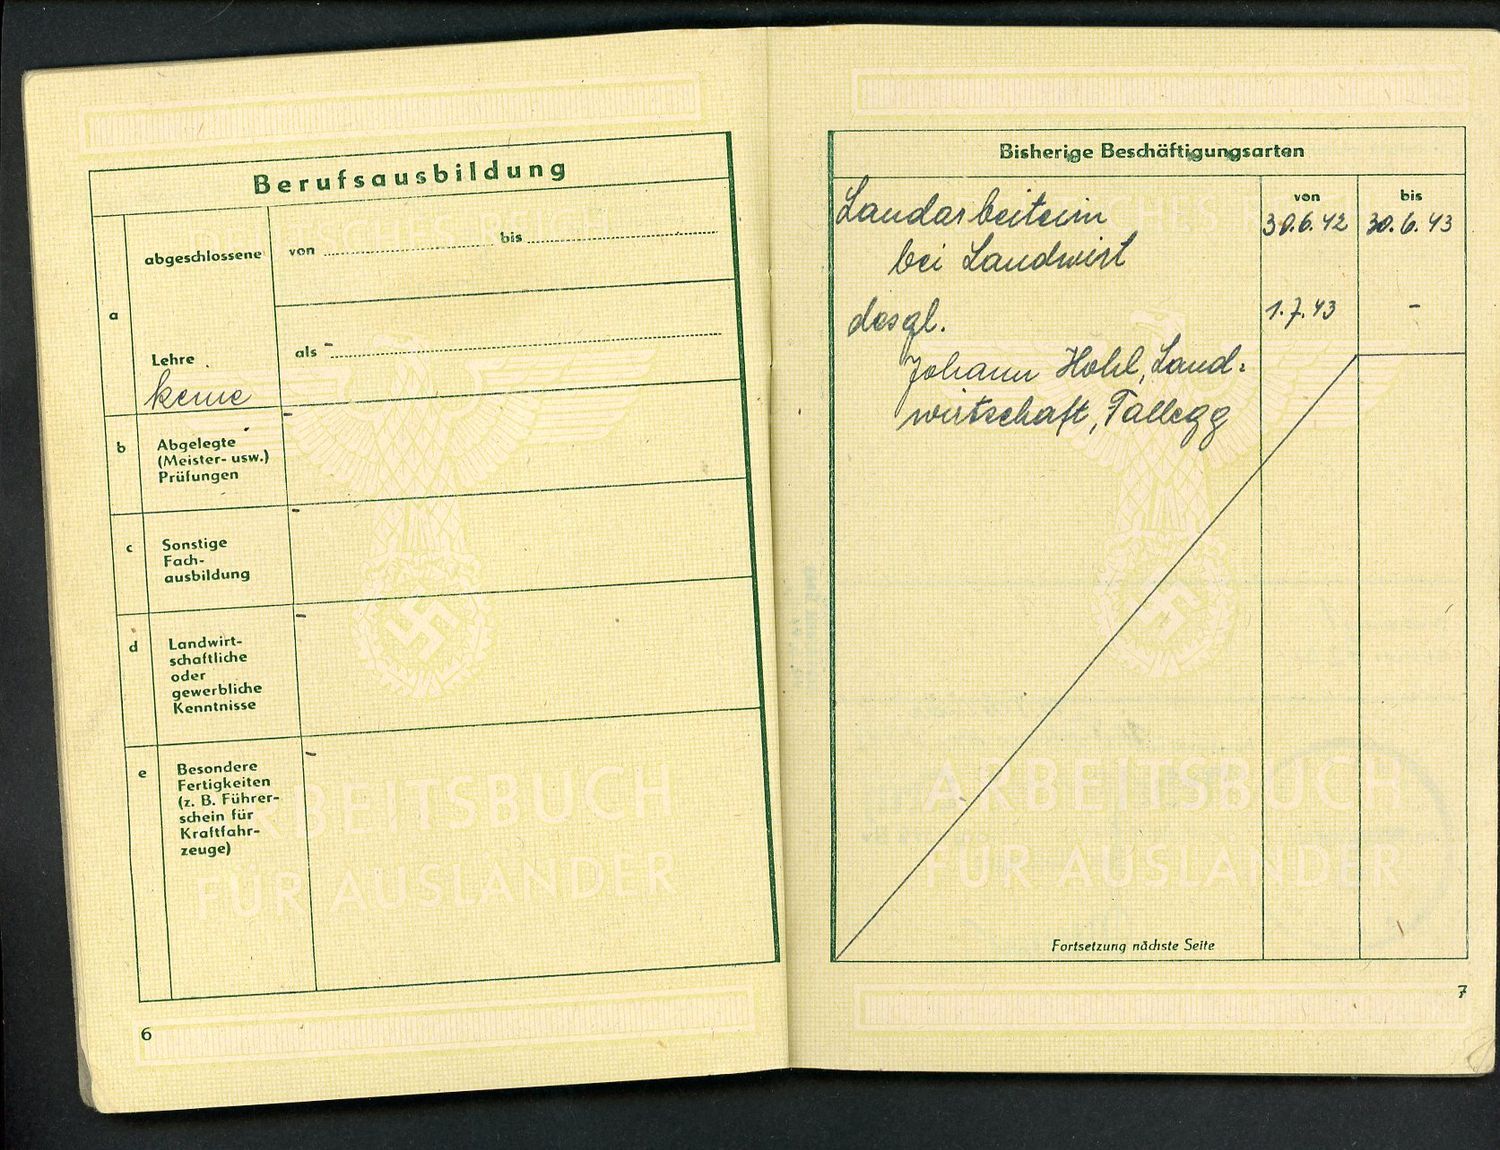 Berufsausbildung
a
abgeschlossene
Lehre
keine
von bis
als -
b
Abgelegte
(Meister- usw.)
Prüfungen
-
c
Sonstige
Fach-
ausbildung
-
d
Landwirt-
schaftliche
oder
gewerbliche
Kenntnisse
-
e
Besondere
Fertigkeiten
(z. B. Führer-
schein für
Kraftfahr-
zeuge)
-
ARBEITSBUCH
FÜR AUSLÄNDER
6
Bisherige Beschäftigungsarten
von bis
Landarbeiterin 30.6.42 30.6.43
bei Landwirt
desgl. 1.7.43 -
Johann Hohl, Land-
wirtschaft, Fallegg
ARBEITSBUCH
FÜR AUSLÄNDER
Fortsetzung nächste Seite
7